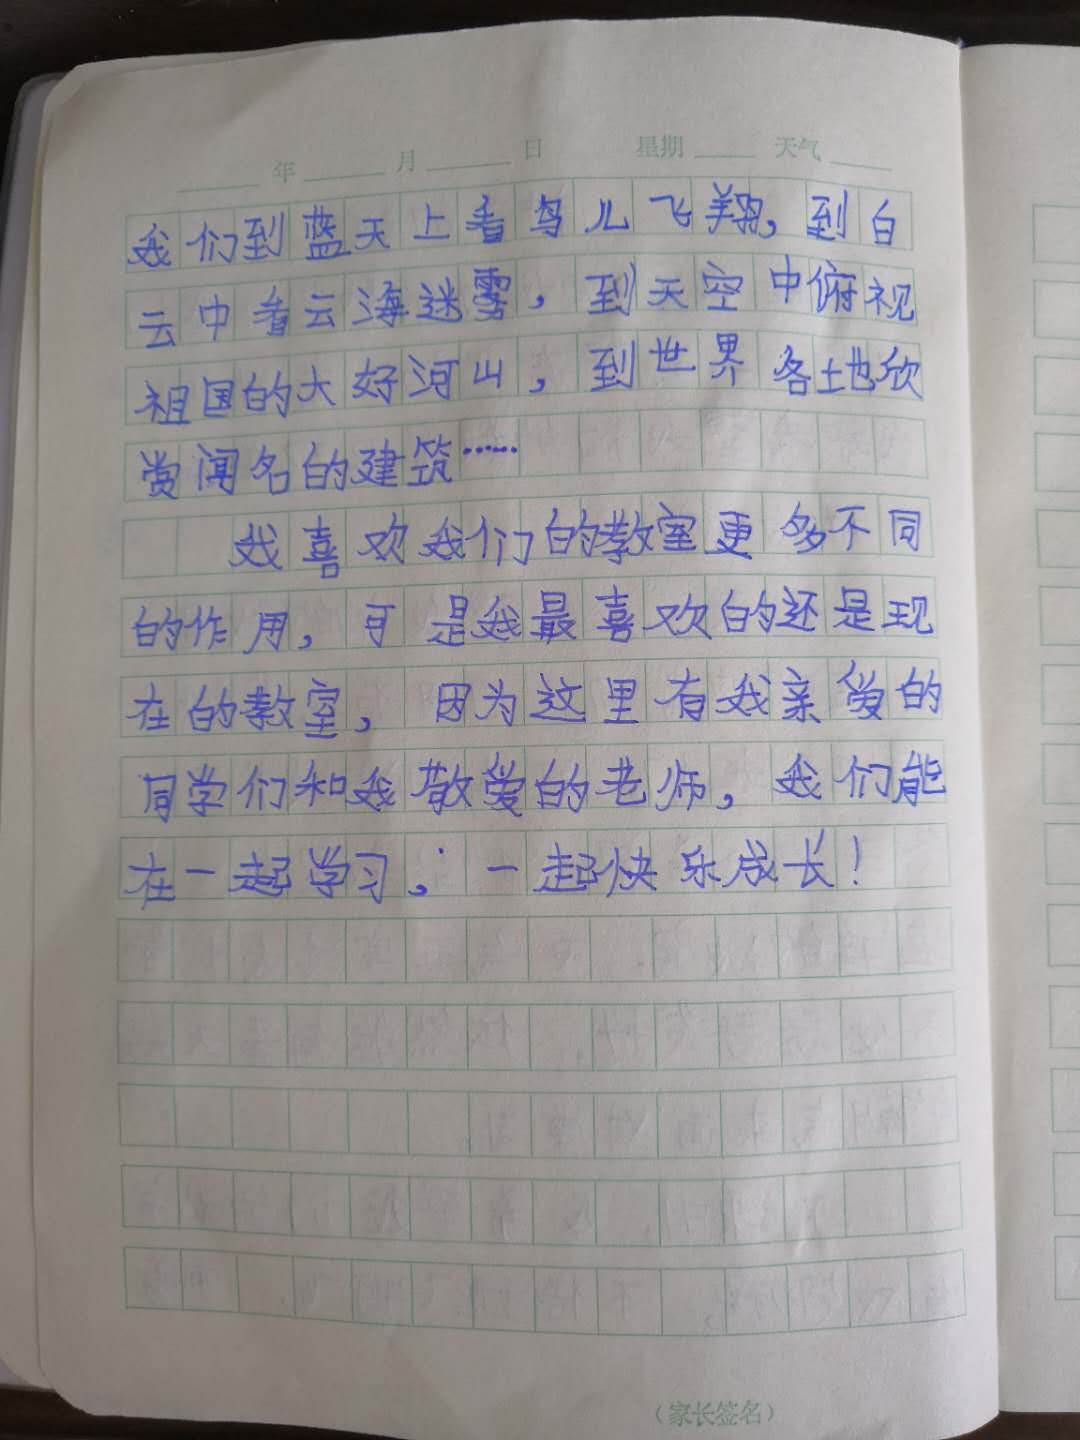 年 月 日 星期 天气
我们到蓝天上看鸟儿飞翔，到白
云中看云海迷雾，到天空中俯视
祖国的大好河山，到世界各地欣
赏闻名的建筑……
我喜欢我们的教室更多不同
的作用，可是我最喜欢的还是现
在的教室，因为这里有我亲爱的
同学们和我敬爱的老师，我们能
在一起学习，一起快乐成长！
（家长签名）